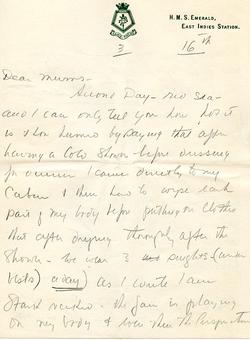 H.M.S. EMERALD,
EAST INDIES STATION.
3
16th
Dear Mums-
Second Day - Red Sea -
and I can only tell you how hot it
is & how humid by saying that after
having a Cold Shower before dressing
for dinner I came directly to my
Cabin & then have to wipe each
part of my body before putting on Clothes
that after drying throughly after the
Shower - We wear 3
vests) as I write I am
Stark naked - the fan is playing
on my body & even then the Perspiration